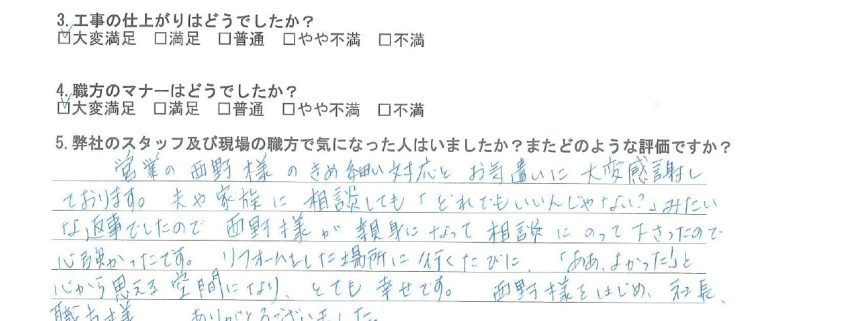 3. 工事の仕上がりはどうでしたか?
☑大変満足 □満足 □普通 □やや不満 □不満
4. 職方のマナーはどうでしたか?
☑大変満足 □満足 □普通 □やや不満 □不満
5. 弊社のスタッフ及び現場の職方で気になった人はいましたか?またどのような評価ですか?
営業の西野様のきめ細い対応とお気遣いに大変感謝し
ております。夫や家族に相談しても「どれでもいいんじゃない?」みたい
な返事でしたので西野様が親身になって相談にのって下さったので
心強かったです。リフォームをした場所に行くたびに、「ああ、よかった」と
心から思える空間になり、とても幸せです。西野様をはじめ、社長、
職方様 ありがとうございました。